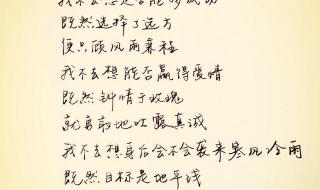 我不去想是否能够成功
既然选择了远方
便只顾风雨兼程
我不去想能否赢得爱情
既然钟情于玫瑰
就勇敢地吐露真诚
我不去想身后会不会袭来寒风冷雨
既然目标是地平线